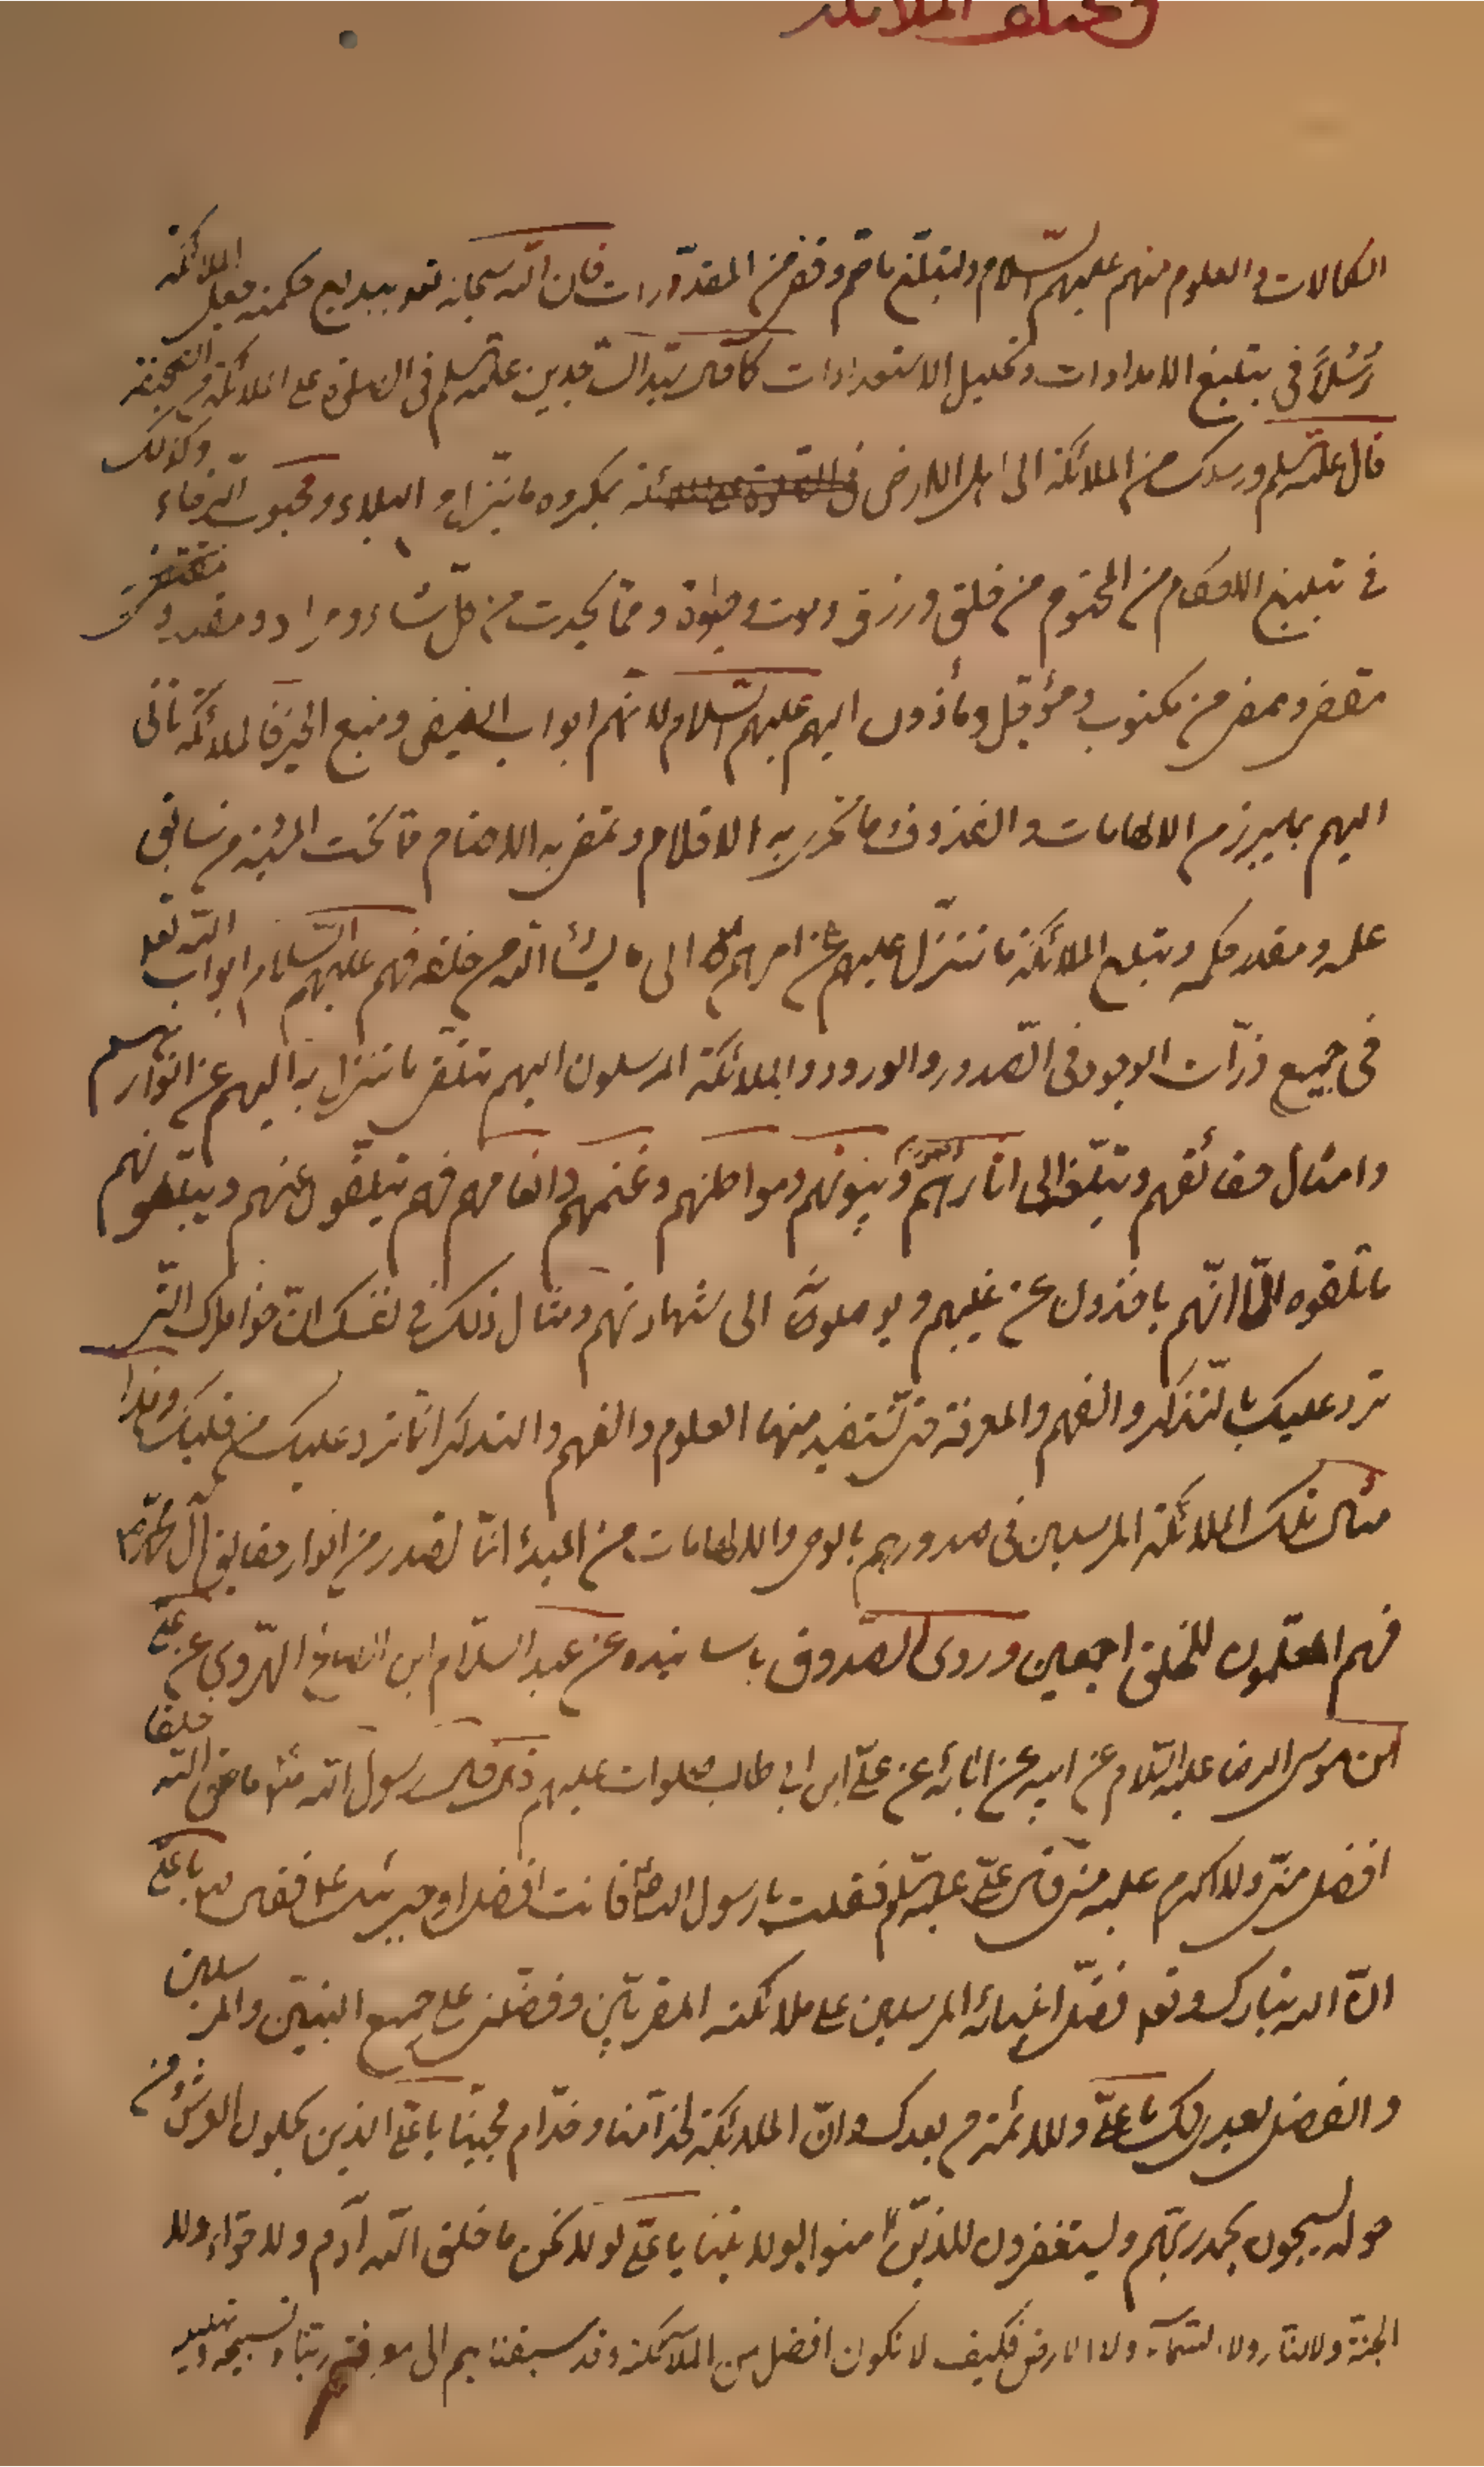 الكمالات والعلوم منهم عليهم السّلام ولتبلّغ ما حتم وقضى من المقدّورات فان الله سبحانه تعو ببديع حكمته جعل الملائكة
رُسُلاً فى تبليغ الامدادات وتكميل الاستعدادات كما قال سيّد السّاجدين عليه السلم فى الصلوة على الملائكة فى الصّحيفة
قال عليه السلم ورسلك من الملائكة الى اهل الارض بمكروه ما ينزل من البلاء ومحبوب الرخاء وكذلك
فى تبليغ الاحكام من المحتوم من خلق ورزق وموت وحيوة ومما يحدث من كلّ مشاء ومراد ومقدر و
مقضى وممضى من مكتوب ومؤجل ومأذون اليهم عليهم السّلام لانّهم ابواب الفيض ومنبع الخير فالملائكة تأتى
اليهم بما يبرز من الالهامات والقذوف وما تجرى به الاقلام وتمضى به الاحتام مما تحت المشيّة من سابق
علمه ومقدر حكمه وتبلغ الملائكة ما تتنزّل عليهم عن امرهم الى ما يشاء الله من خلقه فهم عليهم السّلام ابواب الله تعو
فى جميع ذرّات الوجود فى الصّدور والورود والملائكة المرسلون اليهم تتلقى ما تتنزل به اليهم عن انوارهم
وامثال حقائقهم وتبلّغه الى اثارهم وبيوتهم ومواطنهم وغنمهم وانعامهم فهم يتلقون عنهم ويبلّغونهم
ما تلقوه انّهم ياخذون عن غيبهم ويوصلون الى شهادتهم ومثال ذلك فى نفسك انّ خواطرك الّتى
ترد عليك بالتّذكر والفهم والمعرفة حتى تستفيد منها العلوم والفهم والتذكر انّما ترد عليك من قلبك وهذا
مثال تلك الملائكة المرسلين فى صدورهم بالوحى والالهامات من المبدأ انّما تصدر من انوار حقايق آل محمّد
فهم المعلّمون للخلق اجمعين وروى الصّدوق باسانيده عن عبد السلام ابن الصالح الهروى عن علىّ
ابن موسى الرضا عليه السّلام عن ابيه عن ابائه عن علىّ ابن ابى طالب صلوات عليهم قال قال رسول الله ما خلق الله خلقا
افضل منّى ولا اكرم عليه منّى قال علىّ عليه السّلم فقلت يا رسول الله فانت افضل او جبرئيل فقال يا علىّ
انّ الله تبارك وتعو فضّل انبيائه المرسلين على ملائكته المقربّين وفضّلنى على جميع النبيّين والمرسلين
والفضل بعدى لك يا علىّ وللائمة من بعدك وانّ الملائكة لخدّامنا وخدّام محبّينا يا علىّ الذين يحملون العرش ومن
حوله يسبحون بحمد ربّهم ويستغفرون للذين امنوا بولايتنا يا علىّ لولا نحن ما خلق الله آدم ولا حوّاء ولا
الجنّة ولا النّار ولا السّماء ولا الارض فكيف لا نكون افضل من الملآئكة وقد سبقناهم الى معرفة ربّنا وتسبيحه وتهليله